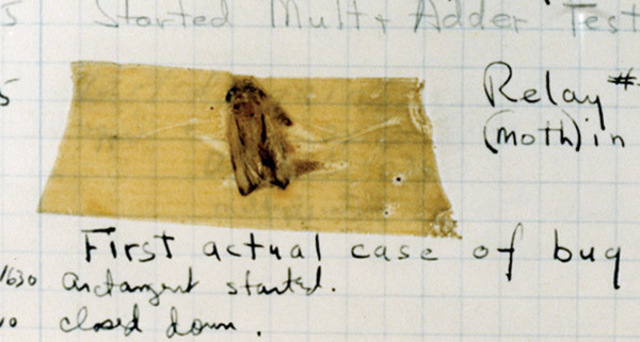 5 Started Mult + Adder Test
5 Relay #
(moth) in
First actual case of bug
1630 arctangent started.
closed down.